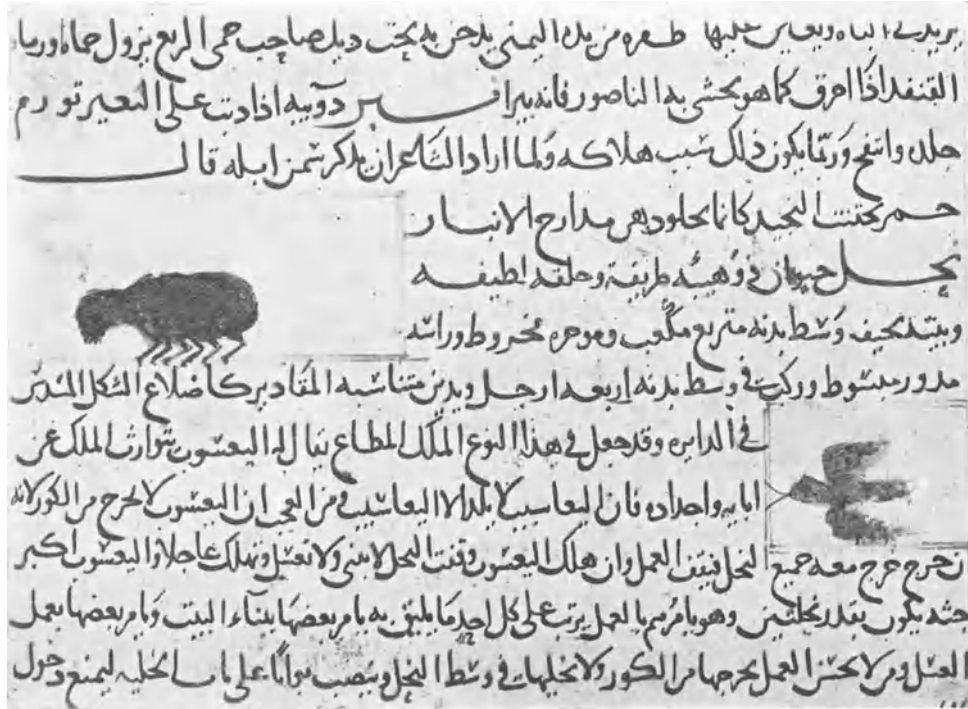 من يده اليمني يدخن به تحت ذيل صاحب حمى الربع يزول حماه ورماد
القنفد اذا احرق كما هو يحشى به الناصور فانه يبرا دويبه اذا دبت على البعير تورم
جلده وانتفخ وربما يكون ذلك سبب هلاكه ولما اراد الشاعر ان يذكر سمن ابله قال
حمر النجيل كانما بجلودهن مدارج الانبار
نحل حيوان ذو هيئه ظريفة وخلقه لطيفه
نحيف وسط بدنه متربع مكعب وموخره مخروط وراسه
مدور مبسوط وركبت في وسط بدنه اربعه ارجل ويدين متناسبه المقادير كاضلاع الشكل المسدس
في الدايره وقد جعل في هذا النوع الملك المطاع يقال له اليعسوب يتوارث الملك عن
ابايه واجداده فان اليعاسيب لا يلد الا اليعاسيب ومن العجب ان اليعسوب لا يخرج من الكور لانه
ان خرج خرج معه جميع النحل فيقف العمل وان هلك اليعسوب وقفت النحل لا تبنى ولا تعسل وتهلك عاجلا واليعسوب اكبر
جثه يكون بقدر نحلتين وهو يامرهم بالعمل يرتب على كل احد ما يليق به يامر بعضها ببناء البيت ويامر بعضها بعمل
العسل ومن لا يحسن العمل يخرجها من الكور ولا يخليها في وسط النحل وينصب بوابا على باب الخليه ليمنع دخول